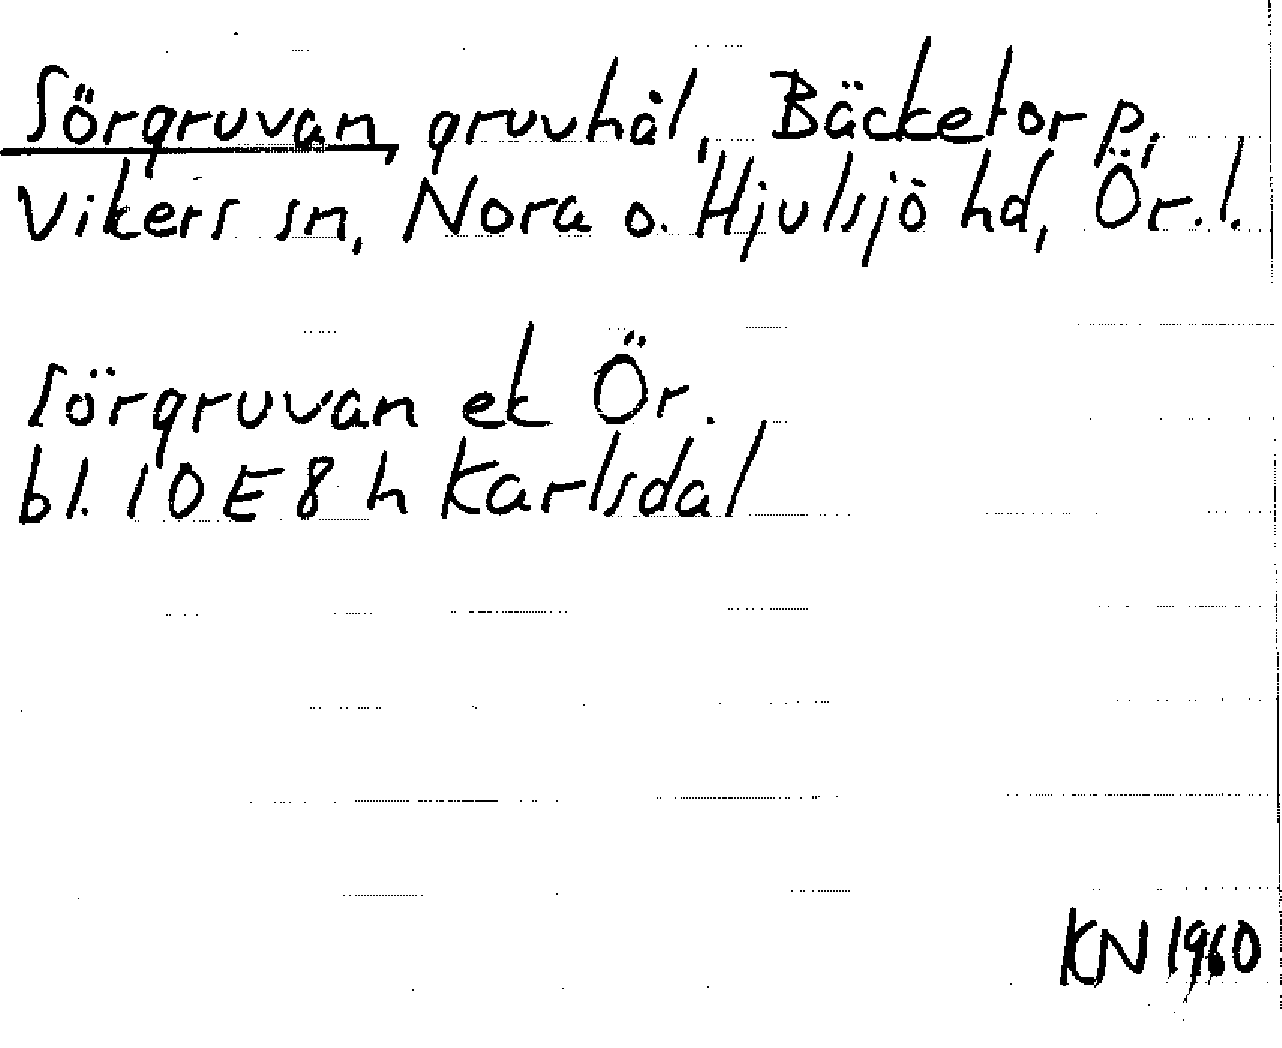 Sörgruvan, gruvhål, Bäcketorp,
Vikers sn, Nora o. Hjulsjö hd, Ör. l.
Sörgruvan ek Ör.
bl. 10 E 8 h Karlsdal
KN 1960